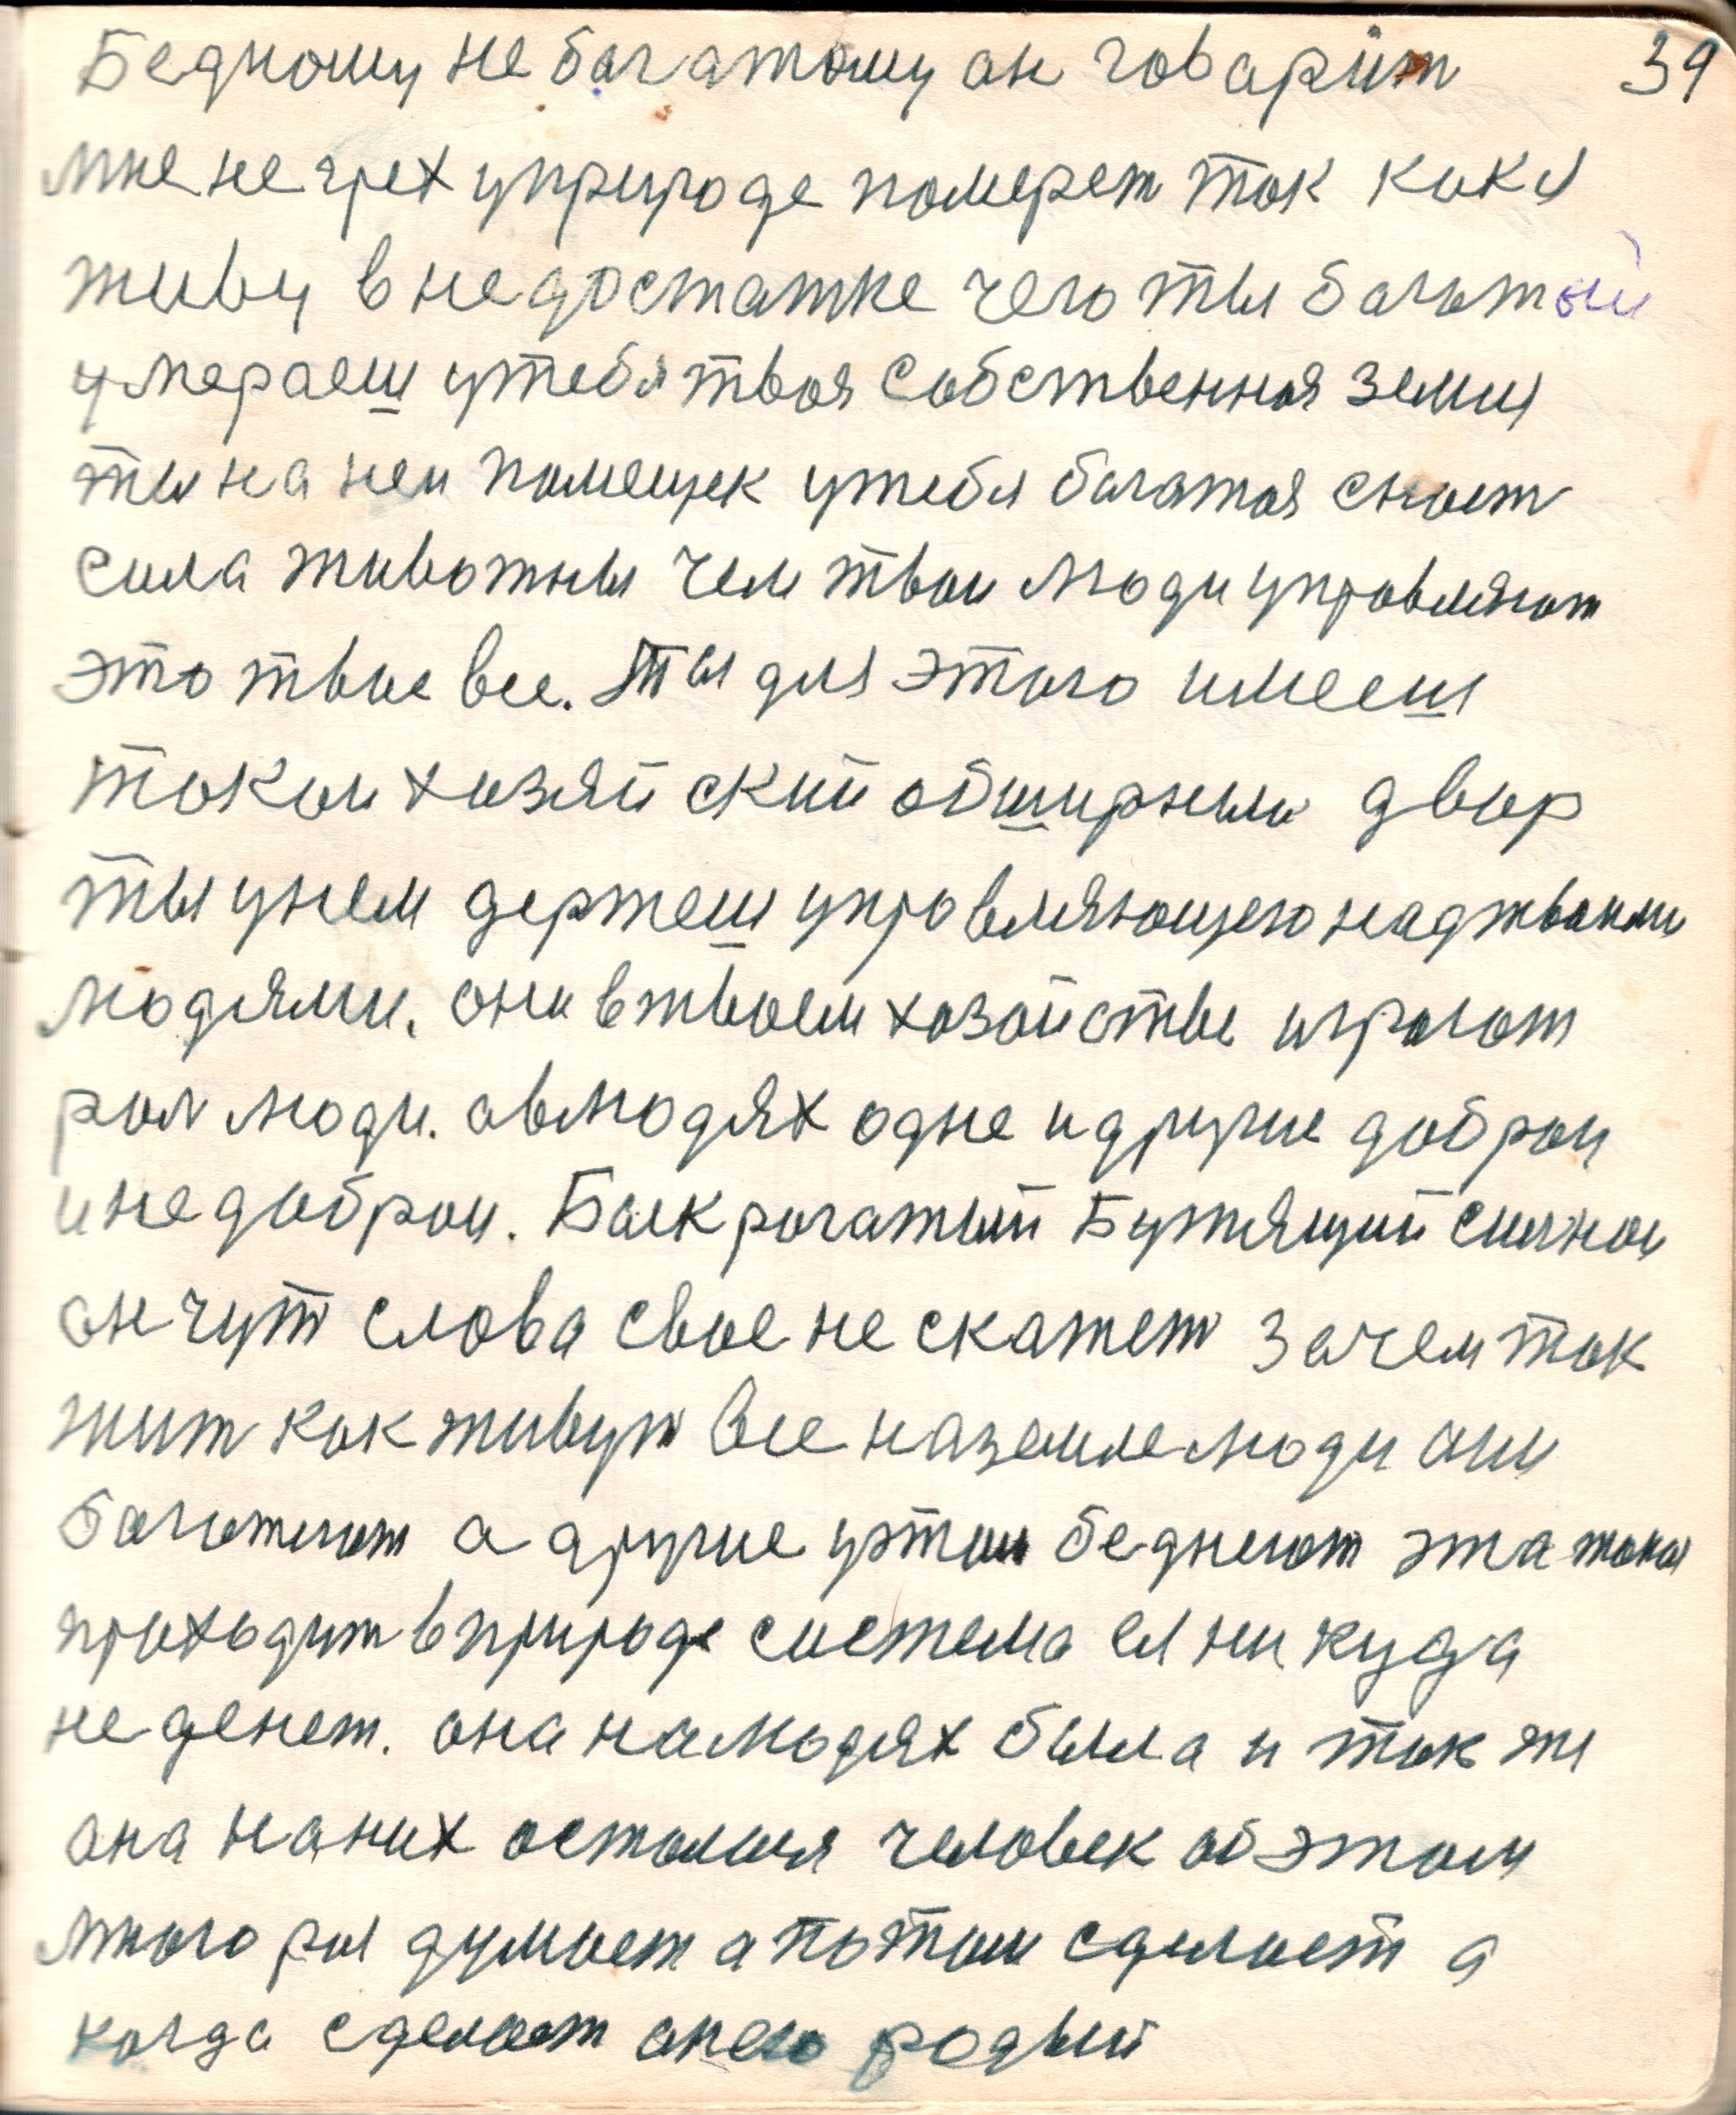 Бедному не багатому он говарит 39
мне не грех уприроде померет так как я
живу в недостатке чего ты багатый
умераеш утебя твоя собственная земля
ты на ней помещек утебя багатая скот
сила животныи чем твои люди управляют
это твое все. Ты для этого имееш
такои хозяйский обширныи двор
ты унем держеш управляющего надтваими
людями. они втвоем хозайстве играют
рол люди. авлюдях одне и другие доброи
и не доброи. Бык рогатый Бужящий силнои
он чут слова свое не скажет зачем так
жит как живут все наземле люди они
багатеют а другие уэтом беднеют эта такая
проходит в природе система ея ни куда
не денет. она налюдях была и так же
она на них осталися человек об этом
много раз думает а потом сделает а
когда сделает он его родный